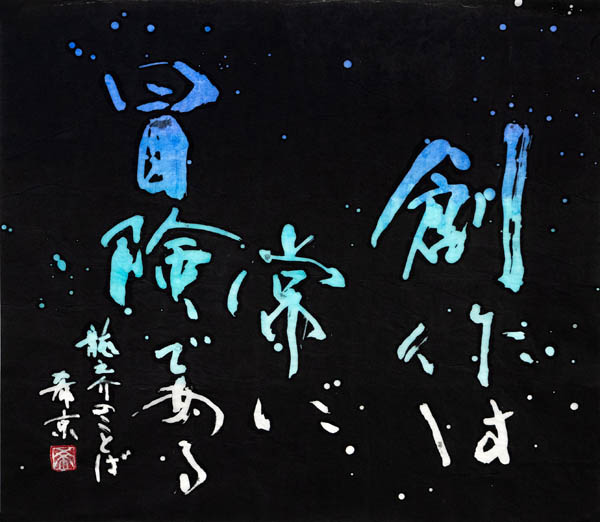 創作は
常に
冒険である
龍之介のことば